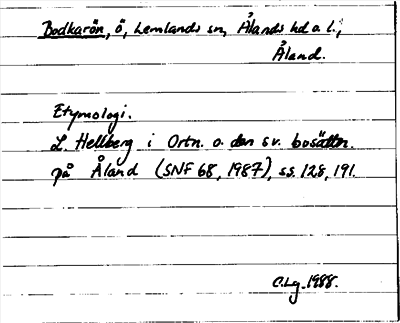 Bodkarön, ö, Lemlands sn, Ålands hd o. l.,
Åland.
Etymologi.
L. Hellberg i Ortn. o. den sv. bosättn.
på Åland (SNF 68, 1987), ss. 128, 191.
C.Lg. 1988.